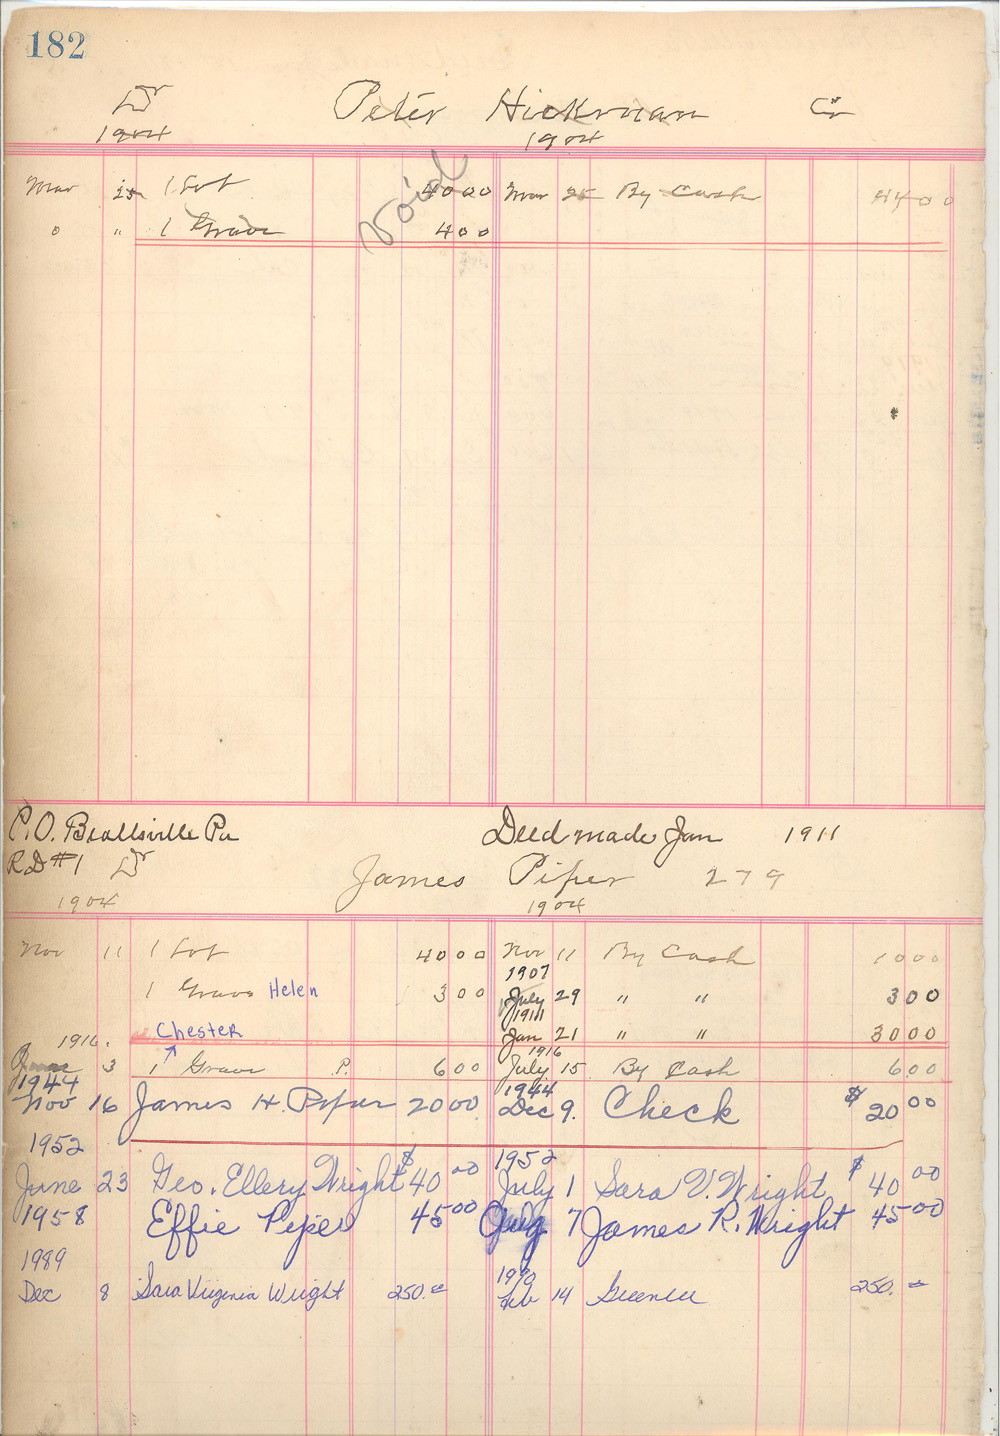 182
Dr Peter Hickman Cr
1904 1904
Void
Mar 25 1 Lot 4000 Mar 25 By Cash 4400
" " 1 Grave 400
P.O. Beallsville Pa Deed made Jan 1911
RD #1 Dr James Piper 279
1904 1904
Nov 11 1 Lot 4000 Nov 11 By Cash 1000
1907
1 Grave Helen 300 July 29 " " 300
1911
Chester Jan 21 " " 3000
1916. 1916
June 3 1 Grave P. 600 July 15 By Cash 600
1944 1944
Nov 16 James H. Piper 2000 Dec 9. Check $ 20 00
1952 1952
June 23 Geo. Ellery Wright $ 40 00 July 1 Sara V. Wright $ 40 00
1958 Effie Piper 45 00 7 James R. Wright 45 00
1989 1990
Dec 8 Sara Virginia Wright 250. Feb 14 250.